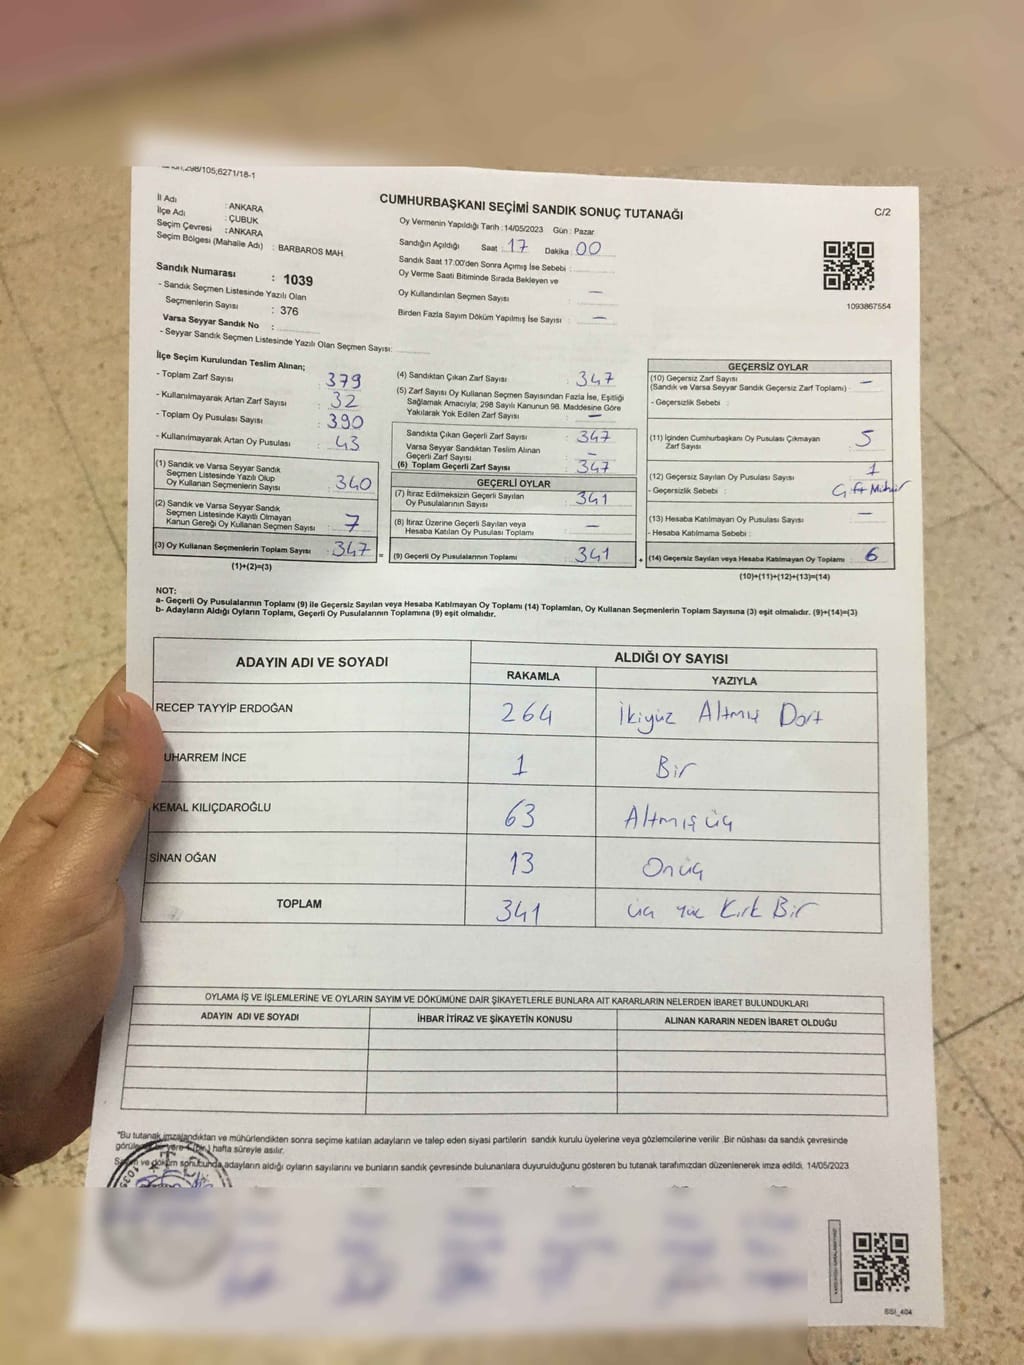 298/105,6271/18-1
CUMHURBAŞKANI SEÇİMİ SANDIK SONUÇ TUTANAĞI
C/2
İl Adı : ANKARA
İlçe Adı : ÇUBUK
Seçim Çevresi : ANKARA
Seçim Bölgesi (Mahalle Adı) : BARBAROS MAH.
Sandık Numarası : 1039
- Sandık Seçmen Listesinde Yazılı Olan
Seçmenlerin Sayısı : 376
Varsa Seyyar Sandık No :
- Seyyar Sandık Seçmen Listesinde Yazılı Olan Seçmen Sayısı:
Oy Vermenin Yapıldığı Tarih : 14/05/2023 Gün : Pazar
Sandığın Açıldığı Saat : 17 Dakika : 00
Sandık Saat 17:00'den Sonra Açımış İse Sebebi :
Oy Verme Saati Bitiminde Sırada Bekleyen ve
Oy Kullandırılan Seçmen Sayısı : —
Birden Fazla Sayım Döküm Yapılmış İse Sayısı : —
1093867554
İlçe Seçim Kurulundan Teslim Alınan;
- Toplam Zarf Sayısı : 379
- Kullanılmayarak Artan Zarf Sayısı : 32
- Toplam Oy Pusulası Sayısı : 390
- Kullanılmayarak Artan Oy Pusulası : 43
(1) Sandık ve Varsa Seyyar Sandık
Seçmen Listesinde Yazılı Olup
Oy Kullanan Seçmenlerin Sayısı : 340
(2) Sandık ve Varsa Seyyar Sandık
Seçmen Listesinde Kayıtlı Olmayan
Kanun Gereği Oy Kullanan Seçmen Sayısı : 7
(3) Oy Kullanan Seçmenlerin Toplam Sayısı : 347 =
(1)+(2)=(3)
(4) Sandıktan Çıkan Zarf Sayısı : 347
(5) Zarf Sayısı Oy Kullanan Seçmen Sayısından Fazla İse, Eşitliği
Sağlamak Amacıyla; 298 Sayılı Kanunun 98. Maddesine Göre
Yakılarak Yok Edilen Zarf Sayısı : —
Sandıkta Çıkan Geçerli Zarf Sayısı : 347
Varsa Seyyar Sandıktan Teslim Alınan
Geçerli Zarf Sayısı : —
(6) Toplam Geçerli Zarf Sayısı : 347
GEÇERLİ OYLAR
(7) İtiraz Edilmeksizin Geçerli Sayılan
Oy Pusulalarının Sayısı : 341
(8) İtiraz Üzerine Geçerli Sayılan veya
Hesaba Katılan Oy Pusulası Toplamı : —
(9) Geçerli Oy Pusulalarının Toplamı : 341 +
GEÇERSİZ OYLAR
(10) Geçersiz Zarf Sayısı
(Sandık ve Varsa Seyyar Sandık Geçersiz Zarf Toplamı) : —
- Geçersizlik Sebebi :
(11) İçinden Cumhurbaşkanı Oy Pusulası Çıkmayan
Zarf Sayısı : 5
(12) Geçersiz Sayılan Oy Pusulası Sayısı : 1
- Geçersizlik Sebebi : Çift Mühür
(13) Hesaba Katılmayan Oy Pusulası Sayısı : —
- Hesaba Katılmama Sebebi :
(14) Geçersiz Sayılan veya Hesaba Katılmayan Oy Toplamı : 6
(10)+(11)+(12)+(13)=(14)
NOT:
a- Geçerli Oy Pusulalarının Toplamı (9) ile Geçersiz Sayılan veya Hesaba Katılmayan Oy Toplamı (14) Toplamları, Oy Kullanan Seçmenlerin Toplam Sayısına (3) eşit olmalıdır. (9)+(14)=(3)
b- Adayların Aldığı Oyların Toplamı, Geçerli Oy Pusulalarının Toplamına (9) eşit olmalıdır.
ADAYIN ADI VE SOYADI ALDIĞI OY SAYISI
RAKAMLA YAZIYLA
RECEP TAYYİP ERDOĞAN 264 İkiyüz Altmış Dört
UHARREM İNCE 1 Bir
KEMAL KILIÇDAROĞLU 63 Altmış üç
SİNAN OĞAN 13 Onüç
TOPLAM 341 üç yüz Kırk Bir
OYLAMA İŞ VE İŞLEMLERİNE VE OYLARIN SAYIM VE DÖKÜMÜNE DAİR ŞİKAYETLERLE BUNLARA AİT KARARLARIN NELERDEN İBARET BULUNDUKLARI
ADAYIN ADI VE SOYADI İHBAR İTİRAZ VE ŞİKAYETİN KONUSU ALINAN KARARIN NEDEN İBARET OLDUĞU
*Bu tutanak imzalandıktan ve mühürlendikten sonra seçime katılan adayların ve talep eden siyasi partilerin sandık kurulu üyelerine veya gözlemcilerine verilir .Bir nüshası da sandık çevresinde
hafta süreyle asılır.
ve döküm sonucunda adayların aldığı oyların sayılarını ve bunların sandık çevresinde bulunanlara duyurulduğunu gösteren bu tutanak tarafımızdan düzenlenerek imza edildi. 14/05/2023
SSI_404